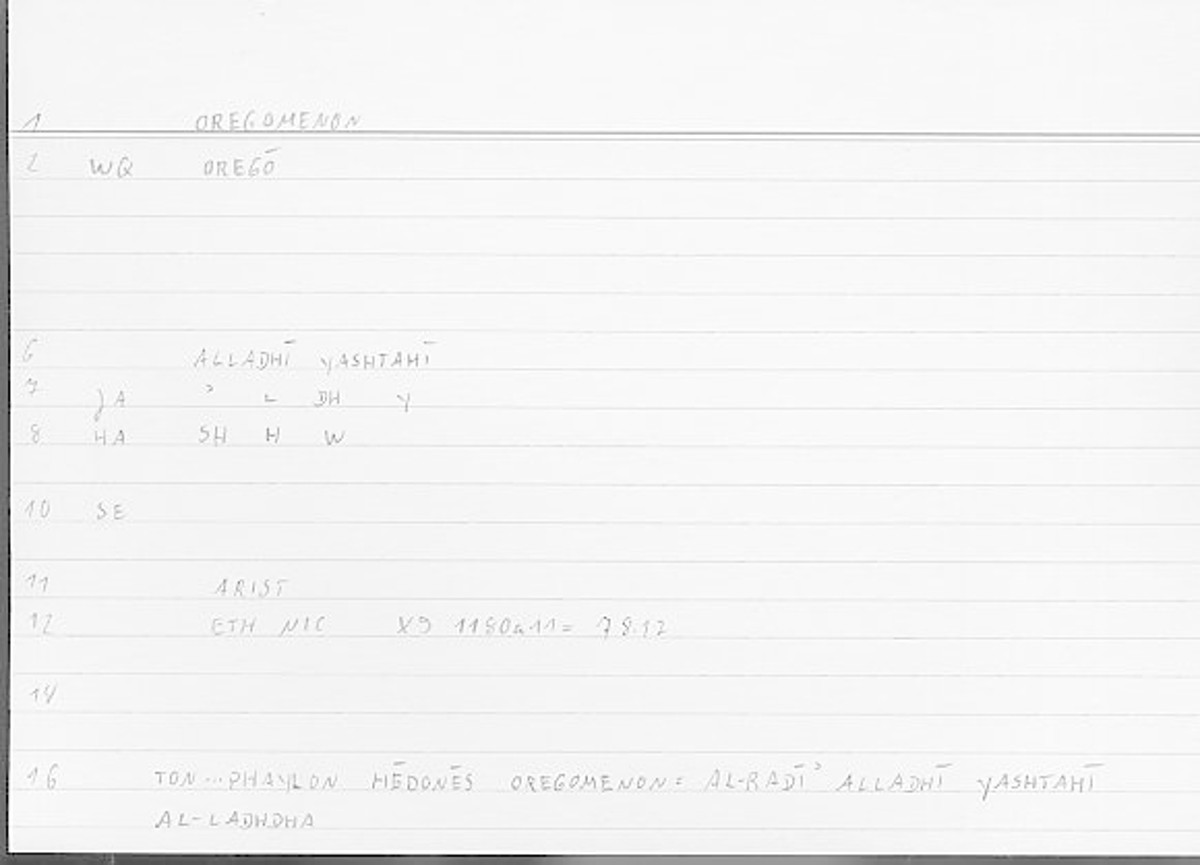 1 OREGOMENON
2 WQ OREGŌ
6 ALLADHĪ YASHTAHĪ
7 JA ʾ L DH Y
8 HA SH H W
10 SE
11 ARIST
12 ETH NIC X9 1180a11= 78.12
14
16 TON...PHAYLON HĒDONĒS OREGOMENON= AL-RADĪʾ ALLADHĪ YASHTAHĪ
AL-LADHDHA